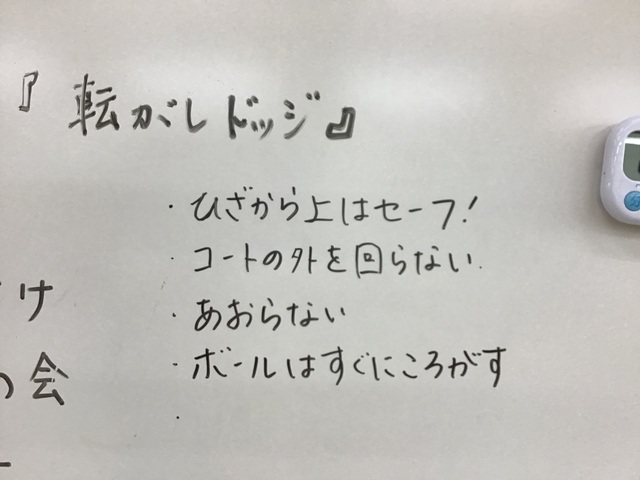 『転がしドッジ』
・ひざから上はセーフ!
・コートの外を回らない.
・あおらない
・ボールはすぐにころがす
・
け
の会